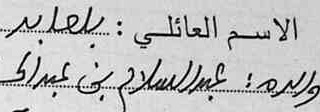 الاسم العائلي : بلعابد
والده : عبد السلام بن عبد الله